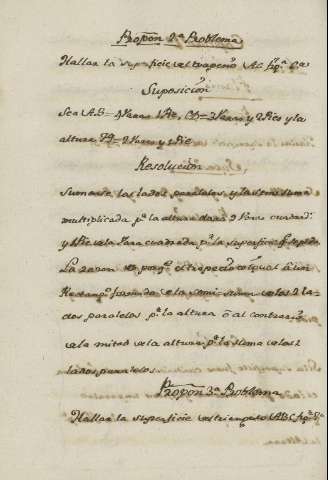 Propon 2ª Problema
Hallar la superficie del trapecio AC
Suposición
Sea AB= 4 Varas 1 Pie, CD= 3 Varas y 2 Pies y la
altura = 2 Varas y 1 Pie
Resolución
Sumense los lados paralelos, y la semisuma
multiplicada pr la altura dara 9 Varas cuadrad.
y 1 Pie de la Vara cuadrada pr la superficie
La razon es porqe el trapecio es igual à un
Rectangº formado de la semi-suma de los 2 la-
dos paralelos pr la altura ō al contrario
de la mitad de la altura pr la suma de los 2
lados paralelos
Propon 3ª Problema
Hallar la superficie del triangulo ABC